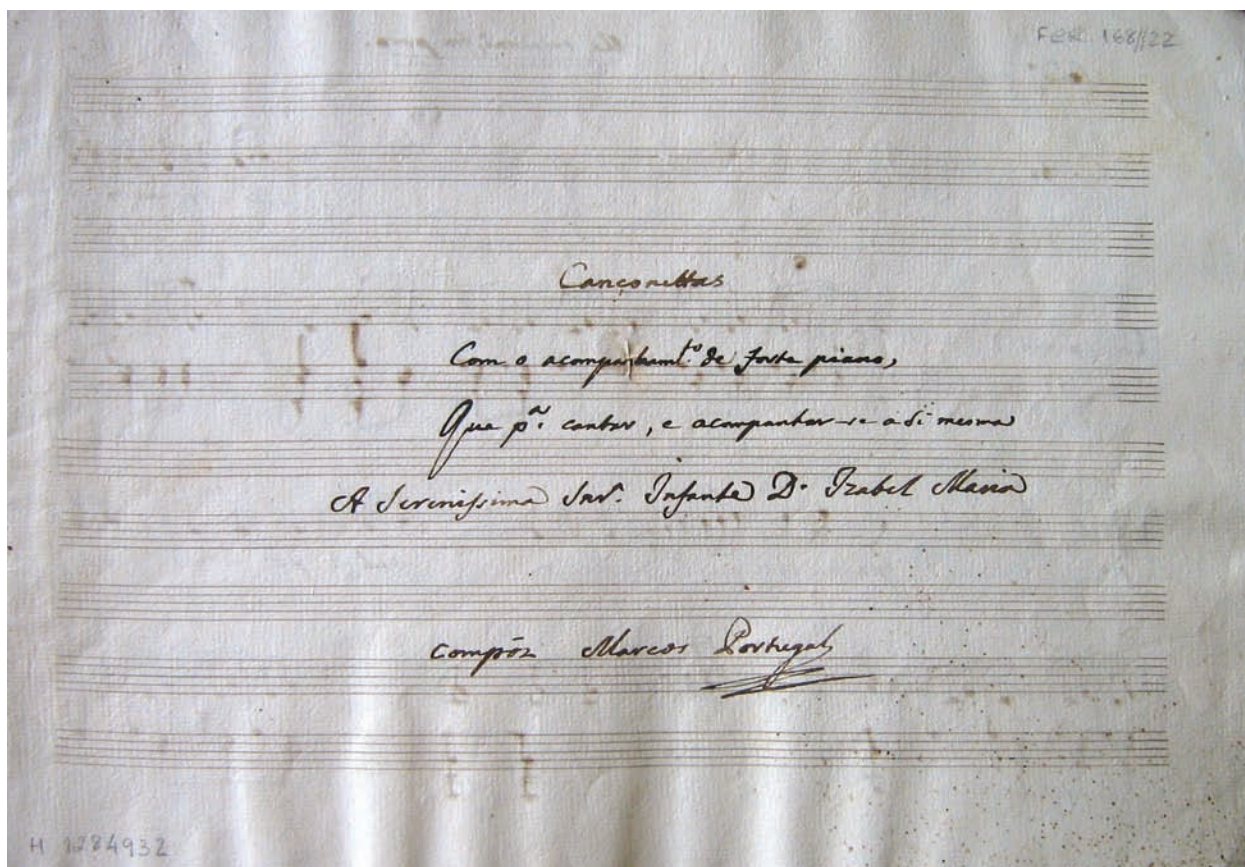 FER 168//22
Cançonettas
Com o acompanham.to de forte piano,
Que p.a cantar, e acompanhar-se a si mesma
A Serenissima Snr.a Infante D. Izabel Maria
compôz Marcos Portugal
H 1284932